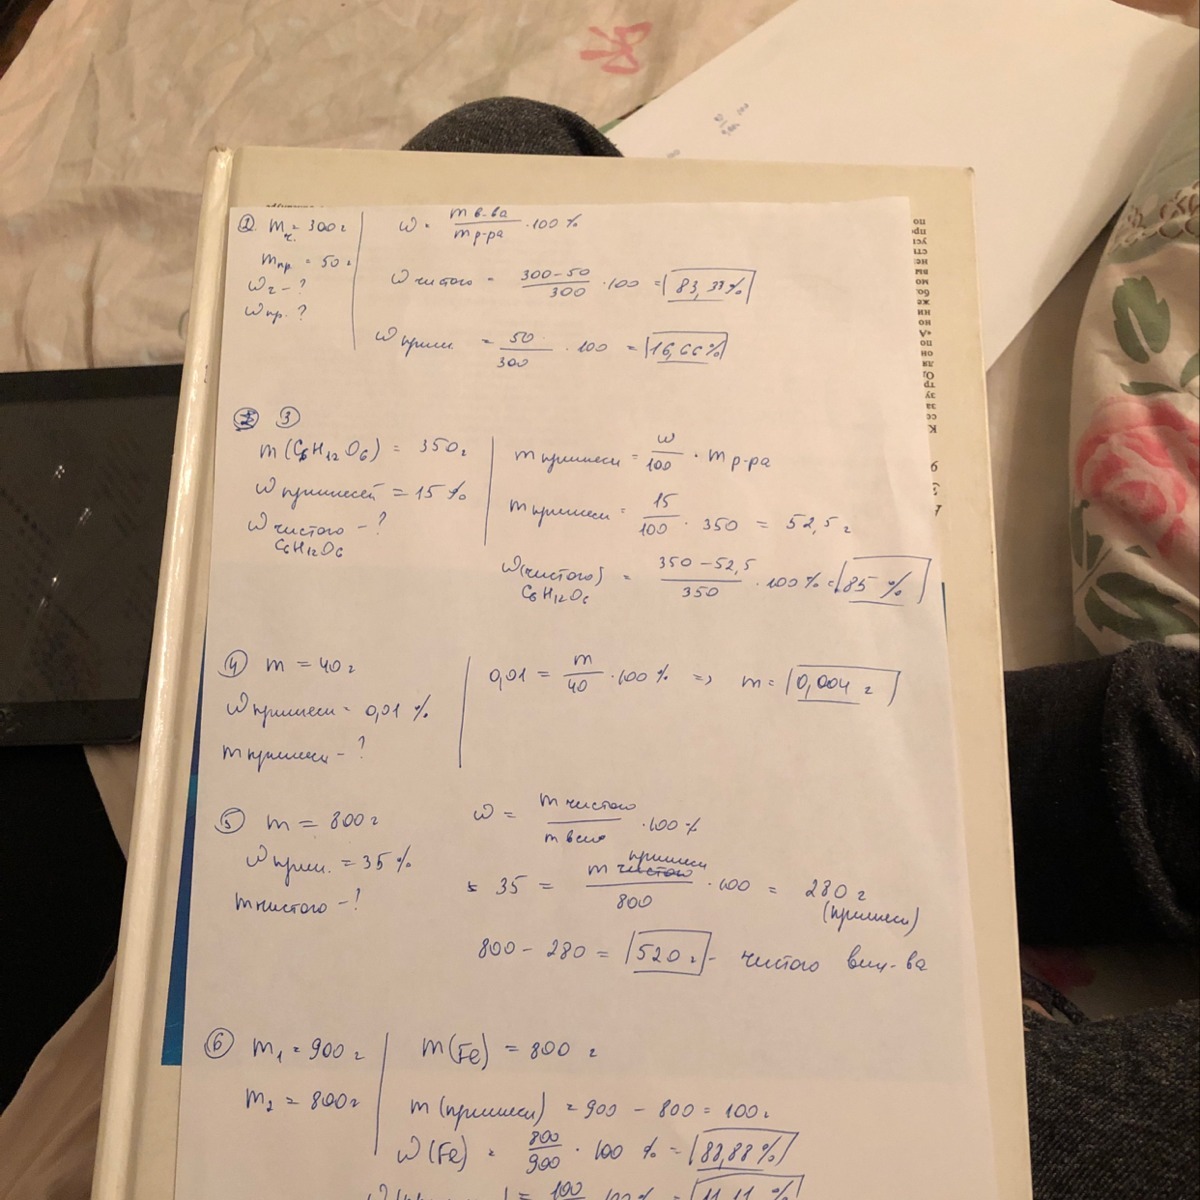 1. mч. = 300 г
mпр = 50 г
ωч - ?
ωпр. ?
ω = m в-ва / m р-ра · 100 %
ω чистого = 300-50 / 300 · 100 = 83,33%
ω примеси = 50 / 300 · 100 = 16,66%
3
m (C6H12O6) = 350 г
ω примесей = 15 %
ω чистого C6H12O6 - ?
m примеси = ω / 100 · m р-ра
m примеси = 15 / 100 · 350 = 52,5 г
ω (чистого) C6H12O6 = 350 - 52,5 / 350 · 100 % = 85 %
4 m = 40 г
ω примеси = 0,01 %
m примеси - ?
0,01 = m / 40 · 100 % => m = 0,004 г
5 m = 800 г
ω прим. = 35 %
m чистого - ?
ω = m чистого / m всего · 100 %
35 = m примеси / 800 · 100 = 280 г (примеси)
800 - 280 = 520 г - чистого вещ-ва
6 m1 = 900 г
m2 = 800 г
m (Fe) = 800 г
m (примеси) = 900 - 800 = 100 г
ω (Fe) = 800 / 900 · 100 % = 88,88 %
100 / 100 % = 11,11 %